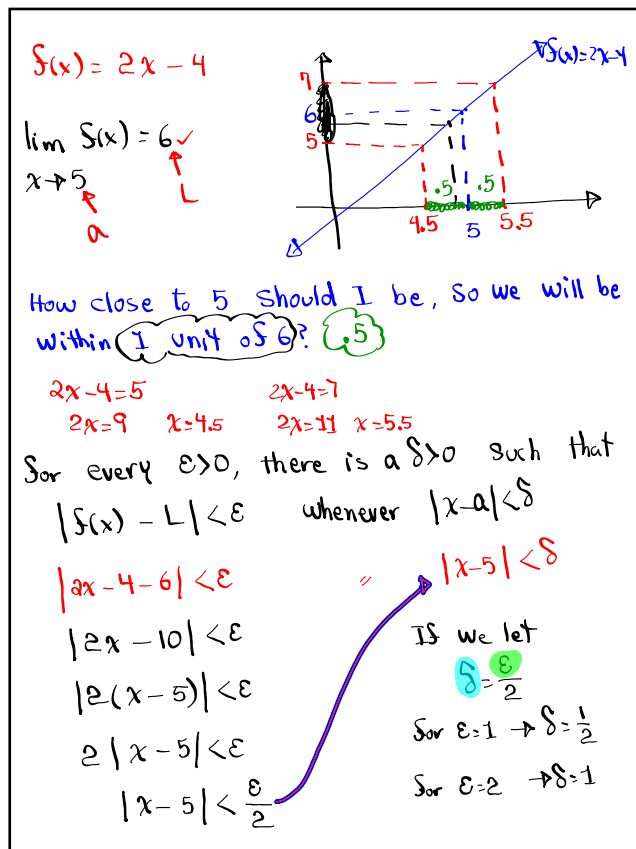 f(x) = 2x - 4
lim f(x) = 6 ✓
x→5
a
L
f(x)=2x-4
7
6
5
.5 .5
4.5 5 5.5
How close to 5 should I be, so we will be
within 1 unit of 6? .5
2x-4=5 2x-4=7
2x=9 x=4.5 2x=11 x=5.5
for every ε>0, there is a δ>0 such that
|f(x) - L| < ε whenever |x-a| < δ
|2x-4-6| < ε " |x-5| < δ
|2x-10| < ε If we let
|2(x-5)| < ε δ = ε/2
2|x-5| < ε for ε=1 → δ=1/2
|x-5| < ε/2 for ε=2 → δ=1